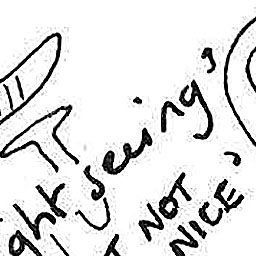 ight seeing'
T NOT
NICE'